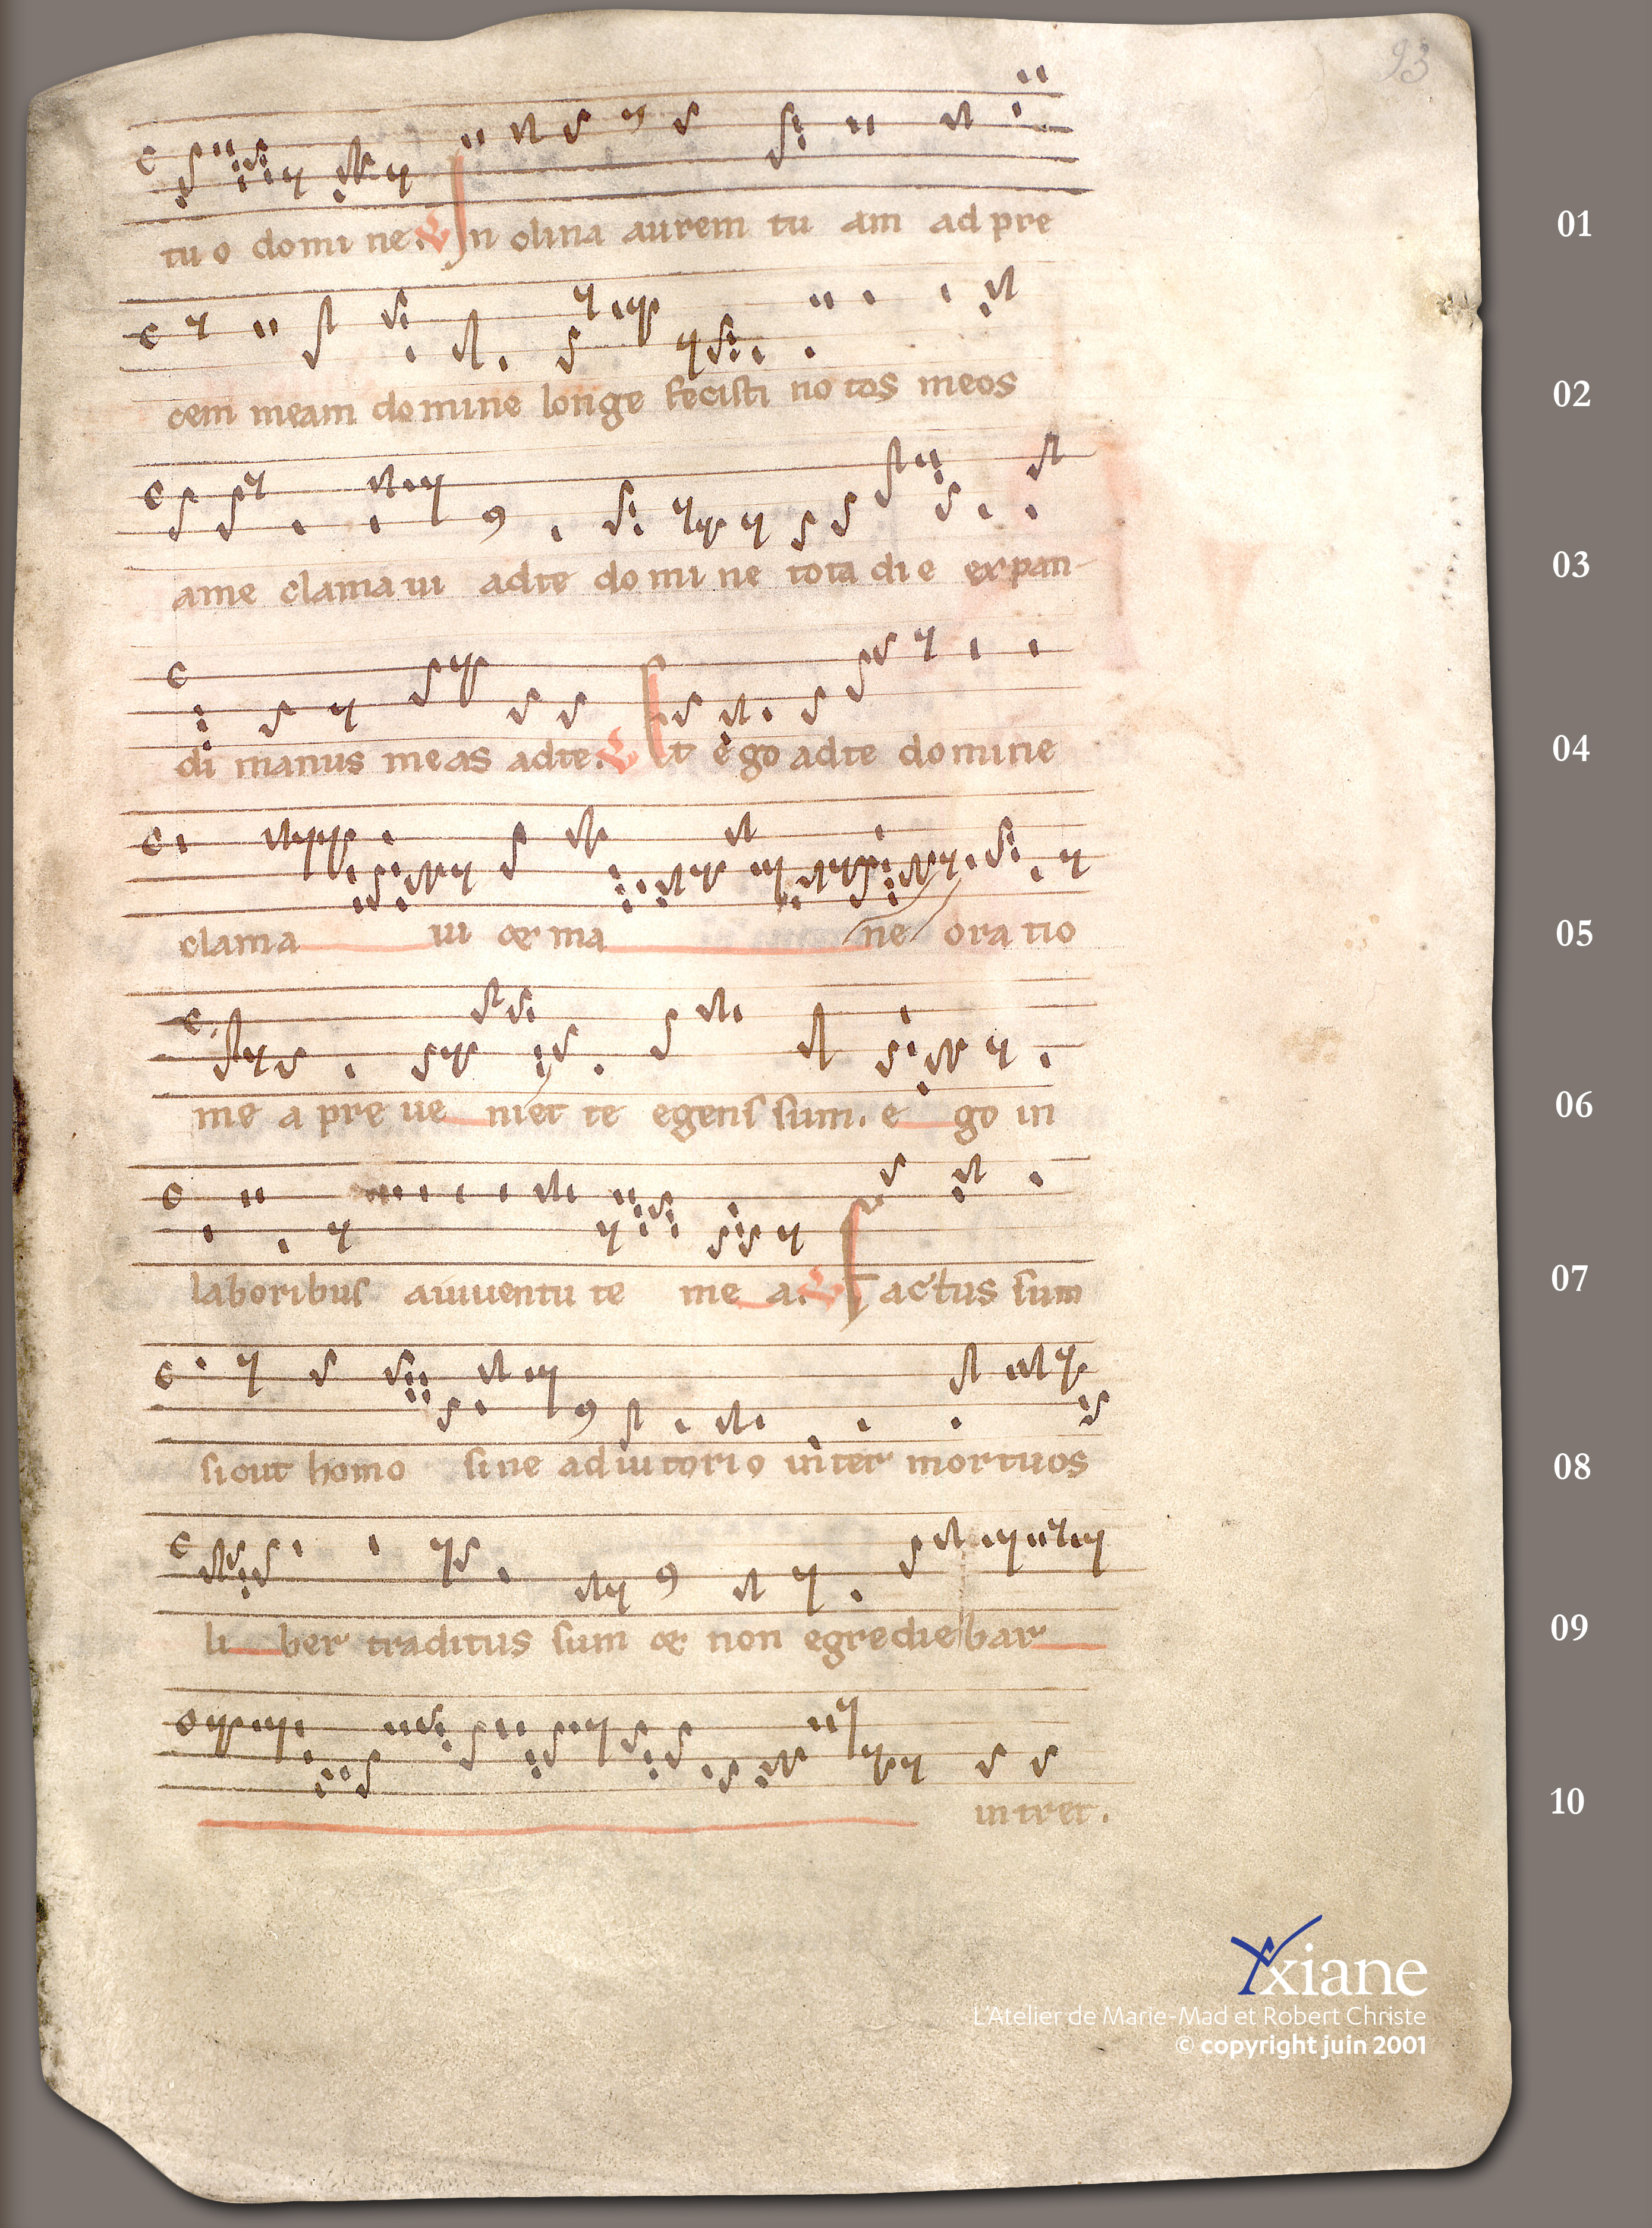 93
tuo domine. V In clina aurem tu am ad pre 01
cem meam domine longe fecisti notos meos 02
ame clamaui adte domine tota die expan- 03
di manus meas adte. V Et ego adte domine 04
clama ui & ma ne oratio 05
me a preue niet te egens sum. e go in 06
laboribus aiuuentute me a. V Factus sum 07
sicut homo sine adiutorio inter mortuos 08
li ber traditus sum & non egrediebar 09
intret. 10
Yxiane
L'Atelier de Marie-Mad et Robert Christe
© copyright juin 2001